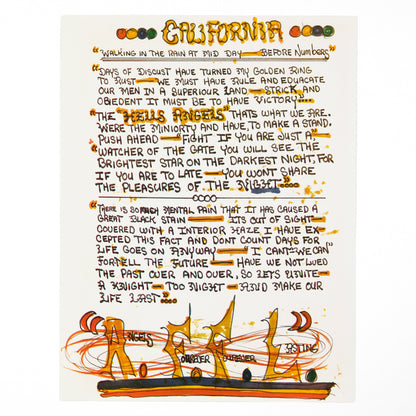 CALIFORNIA
"WALKING IN THE RAIN AT MID DAY — BEFORE NUMBERS"
"DAYS OF DISGUST HAVE TURNED MY GOLDEN RING
TO RUST — WE MUST HAVE RULE AND EDUACATE
OUR MEN IN A SUPERIOUR LAND — STRICK AND
OBEDIENT IT MUST BE TO HAVE VICTORY....
THE "HELLS ANGELS" THATS WHAT WE ARE.
WERE THE MINIORTY AND HAVE, TO MAKE A STAND.
PUSH AHEAD — FIGHT IF YOU ARE JUST A"
"WATCHER OF THE GATE YOU WILL SEE THE
BRIGHTEST STAR ON THE DARKEST NIGHT, FOR
IF YOU ARE TO LATE — YOU WONT SHARE
THE PLEASURES OF THE NIGHT....
"THERE IS SO MUCH MENTAL PAIN THAT IT HAS CAUSED A
GREAT BLACK STAIN — ITS OUT OF SIGHT —
COVERED WITH A INTERIOR HAZE I HAVE EX-
CEPTED THIS FACT AND DONT COUNT DAYS FOR
LIFE GOES ON ANYWAY — "I CANT = WE CAN"
FORTELL THE FUTURE — HAVE WE NOT LIVED
THE PAST OVER AND OVER, SO LETS UNITE —
A KNIGHT — TOO NIGHT — AND MAKE OUR
LIFE LAST....
"A. F. F. L."
ANGELS FOREVER FOREVER LASTING